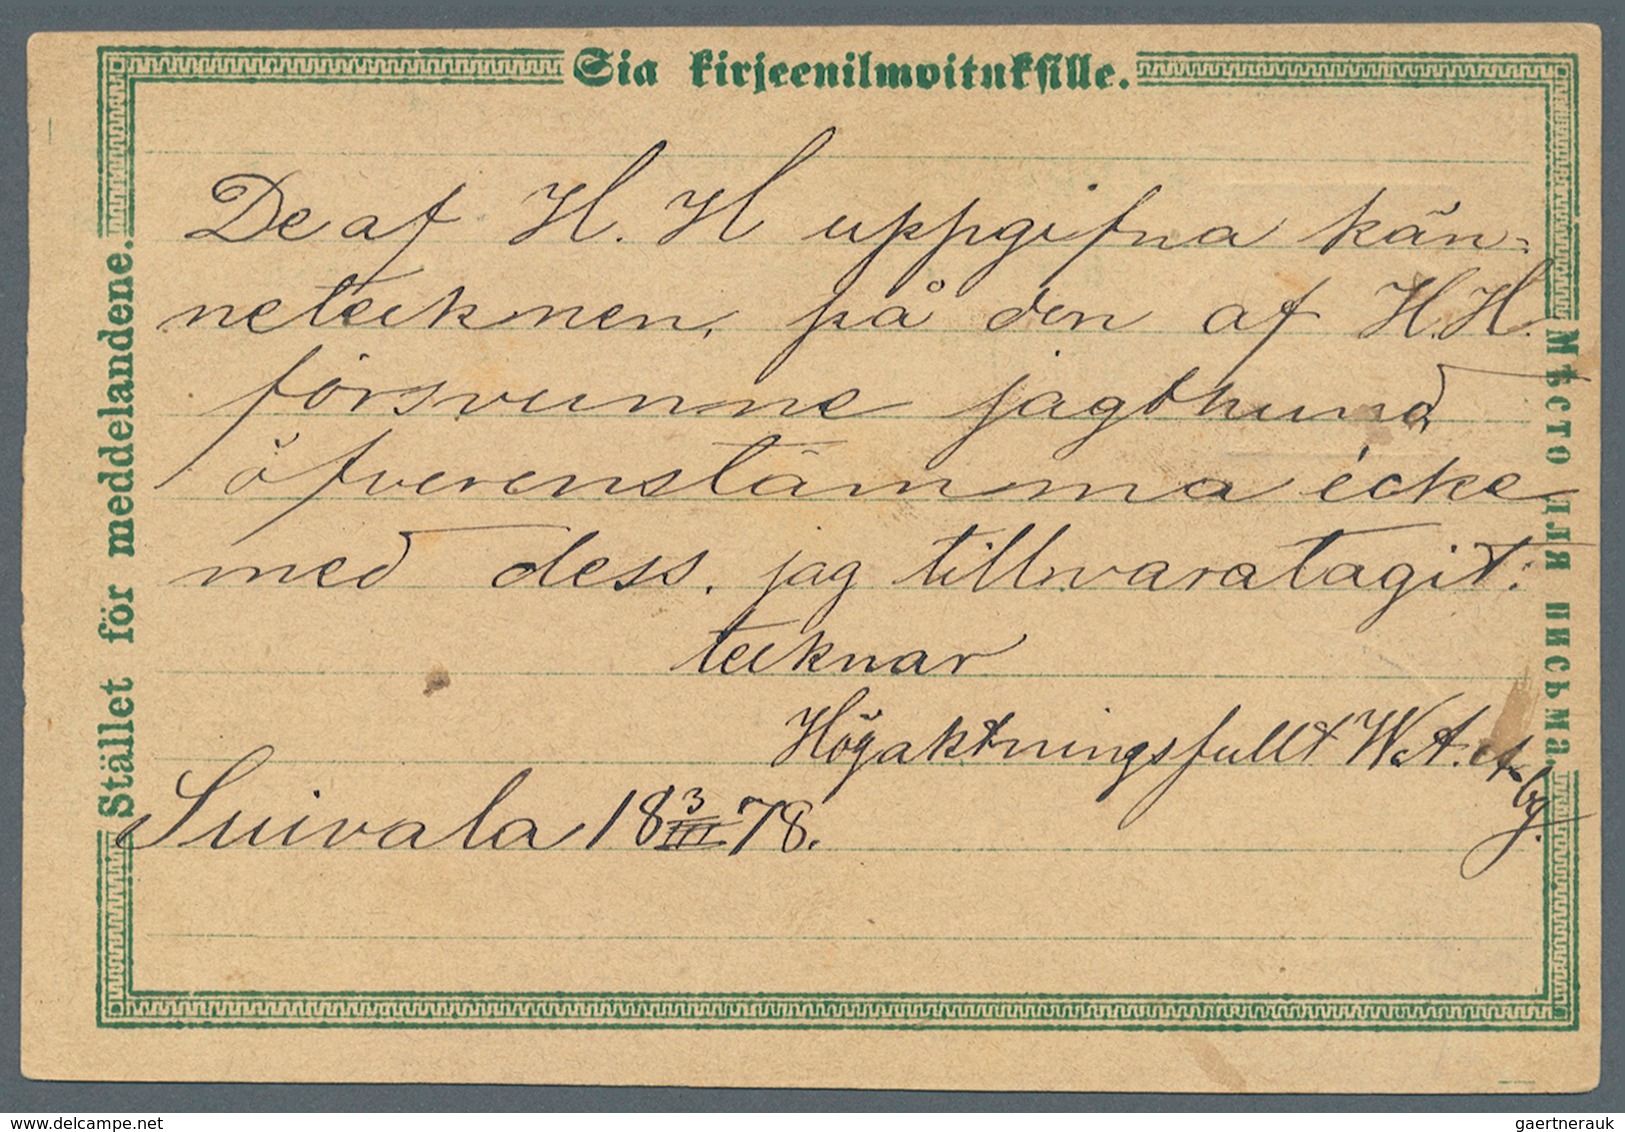 Sia kirjeenilmoituksille.
Stället för meddelandene.
Мѣсто для письма.
De af H. H uppgifna kän-
netecknen, på den af H. H.
försvunne jagthund,
öfverenstämma icke
med dess. jag tillvaratagit:
tecknar
Högaktningsfullt W. A.
Suivala 18 3/III 78.
gaertnerauk